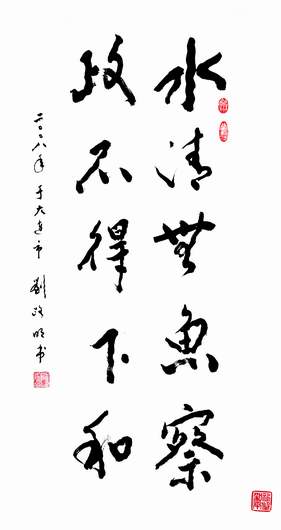 水清無魚察
政不得下和
二〇〇八年于大连市劉政明书